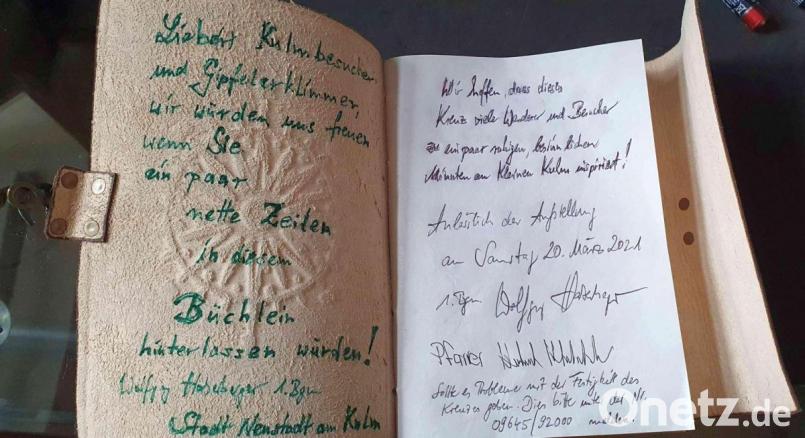 Lieber Kulmbesucher
und Gipfelerklimmer,
wir würden uns freuen
wenn Sie
ein paar
nette Zeilen
in diesem
Büchlein
hinterlassen würden!
Wolfgang Haberberger 1. Bgm
Stadt Neustadt am Kulm
Wir hoffen, dass dieses
Kreuz viele Wanderer und Besucher
zu ein paar ruhigen, besinnlichen
Minuten am Kleinen Kulm inspiriert!
Anlässlich der Aufstellung
am Samstag 20. März 2021
1. Bgm Wolfgang Haberberger
Pfarrer
Sollte es Probleme mit der Festigkeit des
Kreuzes geben. Dies bitte unter der Nr.
09645/92000 melden!
Onetz.de